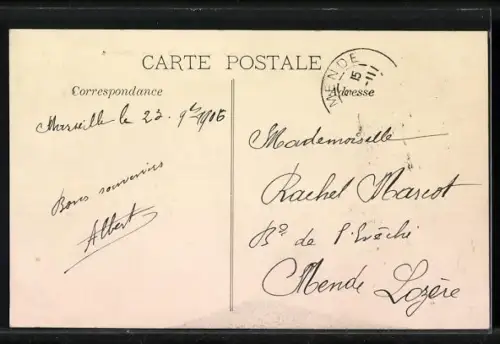 CARTE POSTALE
Correspondance
Adresse
MENDE
15
Marseille le 23. 9bre 1906
Bons souvenirs
Albert
Mademoiselle
Rachel Marcot
Bd de l'Evêché
Mende Lozère